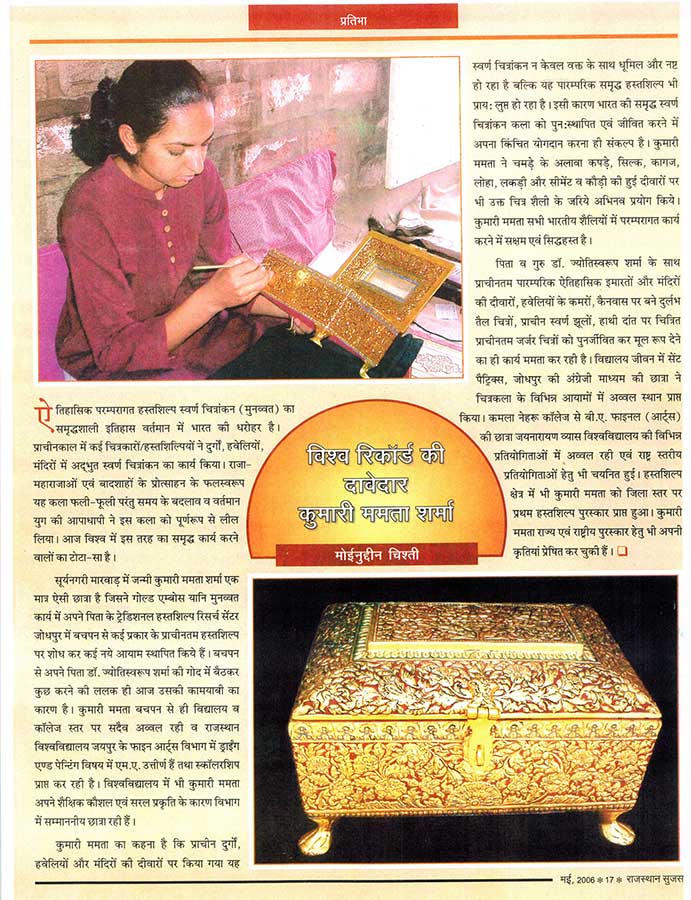 प्रतिभा
ऐतिहासिक परम्परागत हस्तशिल्प स्वर्ण चित्रांकन (मुनव्वत) का
समृद्धशाली इतिहास वर्तमान में भारत की धरोहर है।
प्राचीनकाल में कई चित्रकारों/हस्तशिल्पियों ने दुर्गों, हवेलियों,
मंदिरों में अद्‌भुत स्वर्ण चित्रांकन का कार्य किया। राजा-
महाराजाओं एवं बादशाहों के प्रोत्साहन के फलस्वरूप
यह कला फली-फूली परंतु समय के बदलाव व वर्तमान
युग की आपाधापी ने इस कला को पूर्णरूप से लील
लिया। आज विश्व में इस तरह का समृद्ध कार्य करने
वालों का टोटा-सा है।
सूर्यनगरी मारवाड़ में जन्मी कुमारी ममता शर्मा एक
मात्र ऐसी छात्रा है जिसने गोल्ड एम्बोस यानि मुनव्वत
कार्य में अपने पिता के ट्रेडिशनल हस्तशिल्प रिसर्च सेंटर
जोधपुर में बचपन से कई प्रकार के प्राचीनतम हस्तशिल्प
पर शोध कर कई नये आयाम स्थापित किये हैं। बचपन
से अपने पिता डॉ. ज्योतिस्वरूप शर्मा की गोद में बैठकर
कुछ करने की ललक ही आज उसकी कामयाबी का
कारण है। कुमारी ममता बचपन से ही विद्यालय व
कॉलेज स्तर पर सदैव अव्वल रही व राजस्थान
विश्वविद्यालय जयपुर के फाइन आर्ट्स विभाग में ड्राईंग
एण्ड पेन्टिंग विषय में एम.ए. उत्तीर्ण हैं तथा स्कॉलरशिप
प्राप्त कर रही है। विश्वविद्यालय में भी कुमारी ममता
अपने शैक्षिक कौशल एवं सरल प्रकृति के कारण विभाग
में सम्माननीय छात्रा रही हैं।
कुमारी ममता का कहना है कि प्राचीन दुर्गों,
हवेलियों और मंदिरों की दीवारों पर किया गया यह
विश्व रिकॉर्ड की
दावेदार
कुमारी ममता शर्मा
मोईनुद्दीन चिश्ती
स्वर्ण चित्रांकन न केवल वक्त के साथ धूमिल और नष्ट
हो रहा है बल्कि यह पारम्परिक समृद्ध हस्तशिल्प भी
प्राय: लुप्त हो रहा है। इसी कारण भारत की समृद्ध स्वर्ण
चित्रांकन कला को पुन:स्थापित एवं जीवित करने में
अपना किंचित योगदान करना ही संकल्प है। कुमारी
ममता ने चमड़े के अलावा कपड़े, सिल्क, कागज,
लोहा, लकड़ी और सीमेंट व कौड़ी की हुई दीवारों पर
भी उक्त चित्र शैली के जरिये अभिनव प्रयोग किये।
कुमारी ममता सभी भारतीय शैलियों में परम्परागत कार्य
करने में सक्षम एवं सिद्धहस्त है।
पिता व गुरु डॉ. ज्योतिस्वरूप शर्मा के साथ
प्राचीनतम पारम्परिक ऐतिहासिक इमारतों और मंदिरों
की दीवारों, हवेलियों के कमरों, कैनवास पर बने दुर्लभ
तैल चित्रों, प्राचीन स्वर्ण झूलों, हाथी दांत पर चित्रित
प्राचीनतम जर्जर चित्रों को पुनर्जीवित कर मूल रूप देने
का ही कार्य ममता कर रही है। विद्यालय जीवन में सेंट
पैट्रिक्स, जोधपुर की अंग्रेजी माध्यम की छात्रा ने
चित्रकला के विभिन्न आयामों में अव्वल स्थान प्राप्त
किया। कमला नेहरू कॉलेज से बी.ए. फाइनल (आर्ट्स)
की छात्रा जयनारायण व्यास विश्वविद्यालय की विभिन्न
प्रतियोगिताओं में अव्वल रही एवं राष्ट्र स्तरीय
प्रतियोगिताओं हेतु भी चयनित हुई। हस्तशिल्प
क्षेत्र में भी कुमारी ममता को जिला स्तर पर
प्रथम हस्तशिल्प पुरस्कार प्राप्त हुआ। कुमारी
ममता राज्य एवं राष्ट्रीय पुरस्कार हेतु भी अपनी
कृतियां प्रेषित कर चुकी हैं। ❑
मई, 2006 * 17 * राजस्थान सुजस